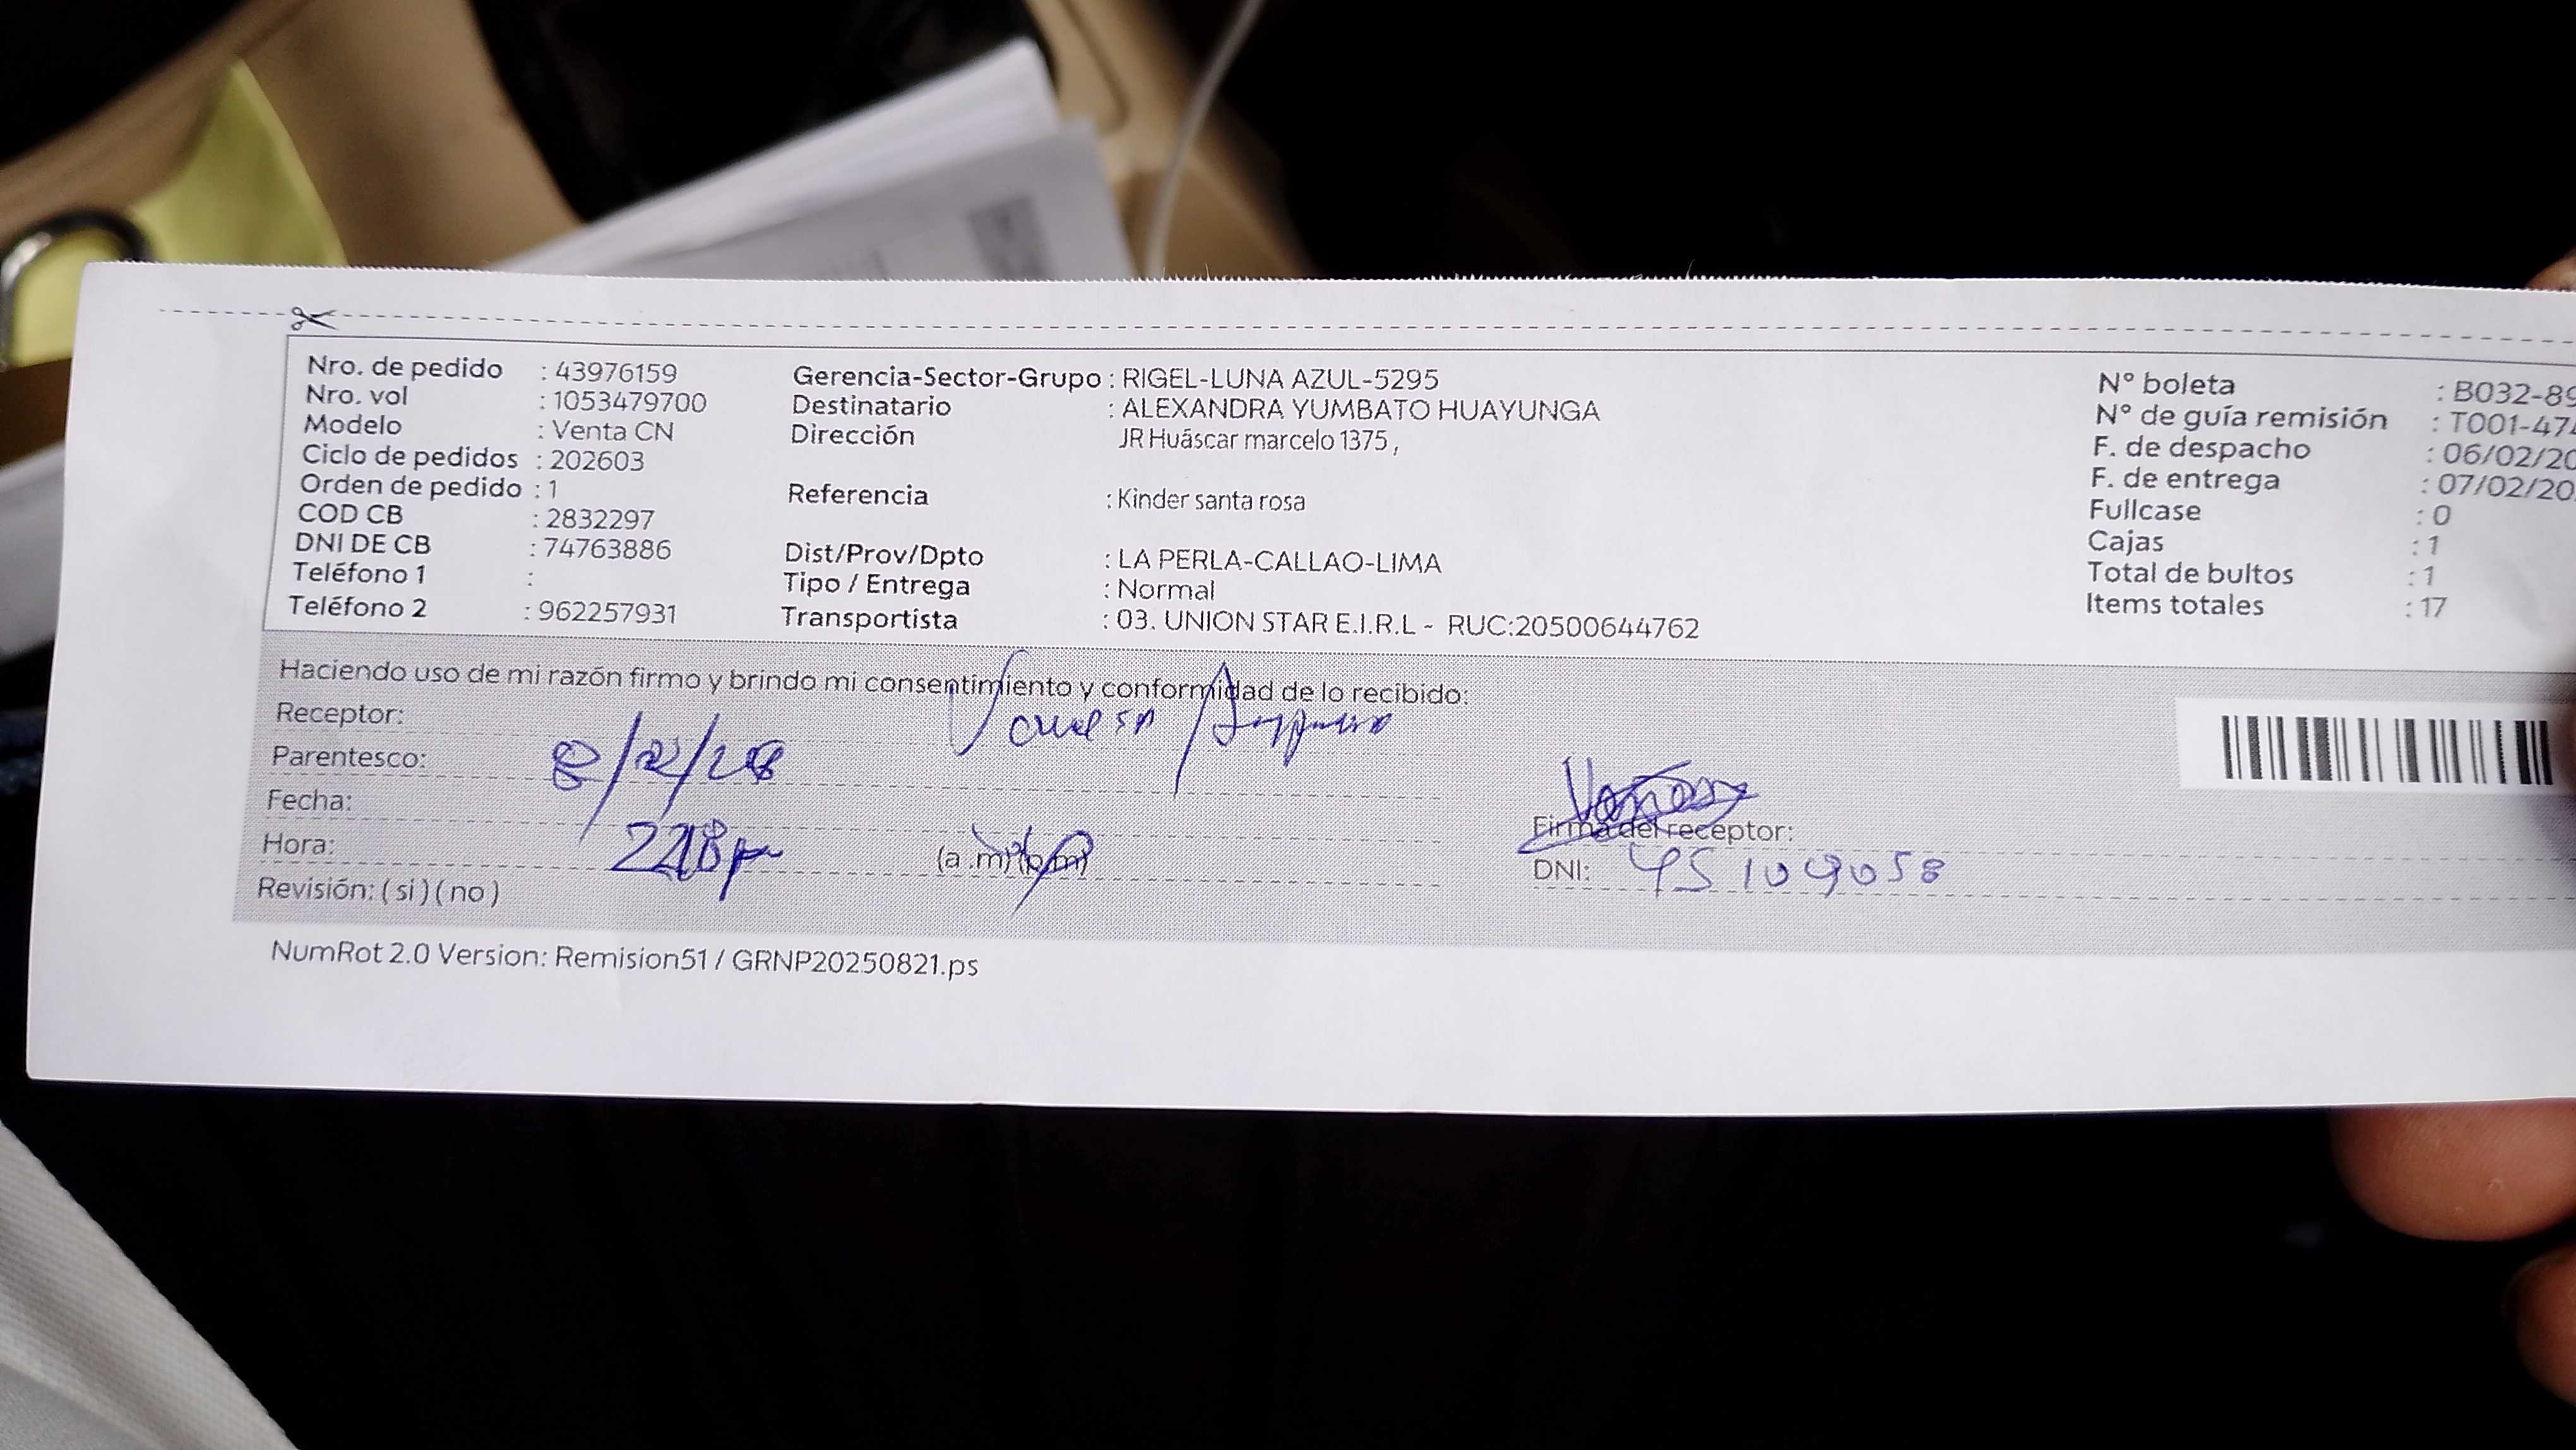 Nro. de pedido : 43976159
Nro. vol : 1053479700
Modelo : Venta CN
Ciclo de pedidos : 202603
Orden de pedido : 1
COD CB : 2832297
DNI DE CB : 74763886
Teléfono 1 :
Teléfono 2 : 962257931
Gerencia-Sector-Grupo : RIGEL-LUNA AZUL-5295
Destinatario : ALEXANDRA YUMBATO HUAYUNGA
Dirección JR Huáscar marcelo 1375 ,
Referencia : Kinder santa rosa
Dist/Prov/Dpto : LA PERLA-CALLAO-LIMA
Tipo / Entrega : Normal
Transportista : 03. UNION STAR E.I.R.L - RUC:20500644762
N° boleta : B032-89
N° de guía remisión : T001-474
F. de despacho : 06/02/20
F. de entrega : 07/02/20
Fullcase : 0
Cajas : 1
Total de bultos : 1
Items totales : 17
Haciendo uso de mi razón firmo y brindo mi consentimiento y conformidad de lo recibido:
Receptor:
Parentesco:
Fecha:
Hora: (a .m) (p.m)
Revisión: ( si ) ( no )
Firma del receptor:
DNI: 45109058
NumRot 2.0 Version: Remision51 / GRNP20250821.ps